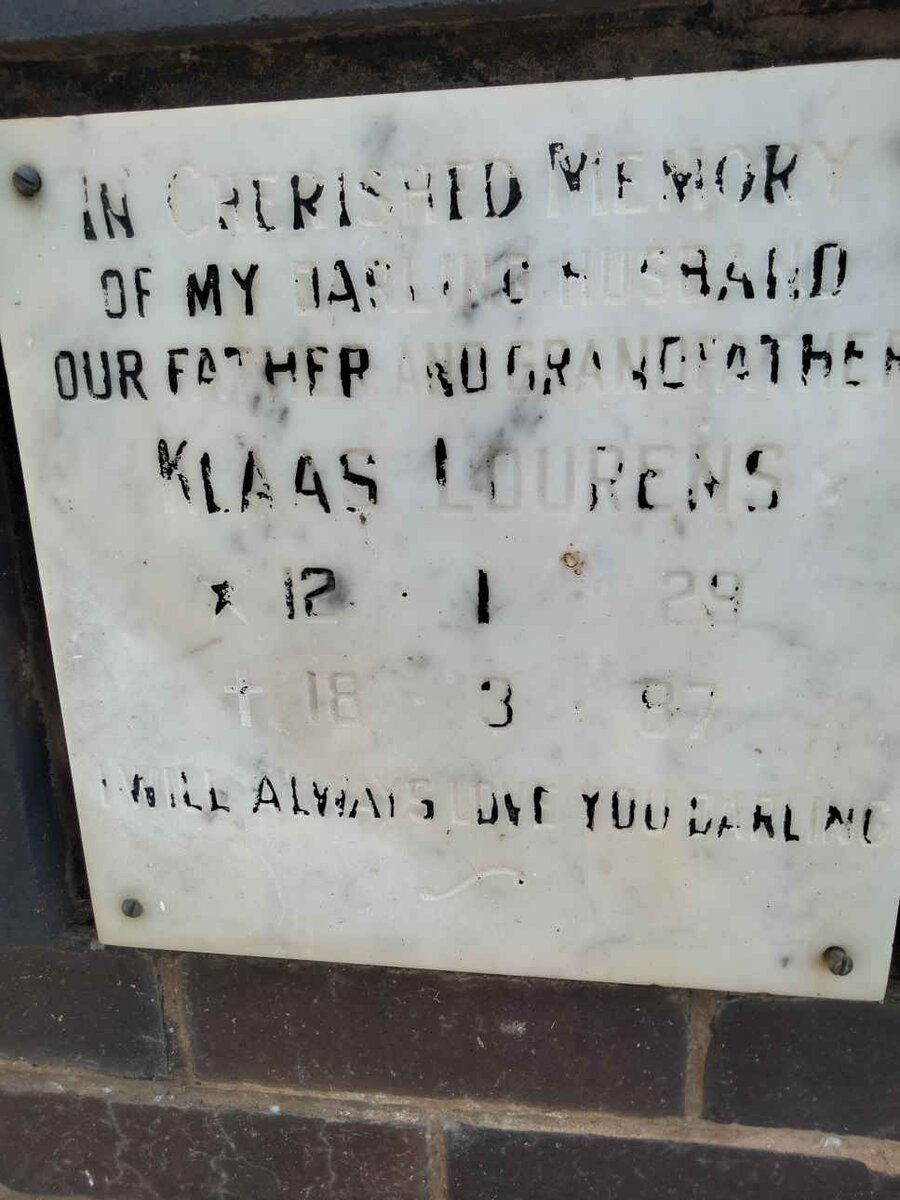 IN CHERISHED MEMORY
OF MY DARLING HUSBAND
OUR FATHER AND GRANDFATHER
KLAAS LOURENS
* 12 · 1 · 29
† 18 · 3 · 97
I WILL ALWAYS LOVE YOU DARLING